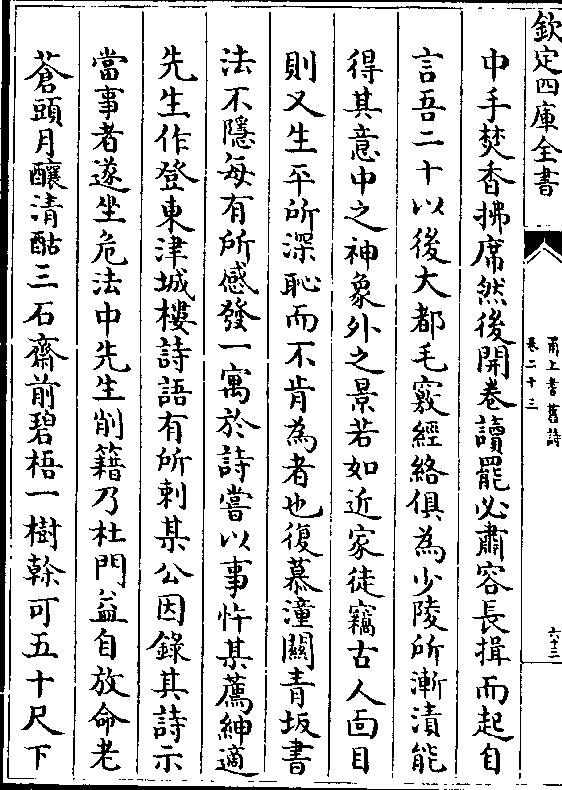 欽定四庫全書
甬上耆舊詩
卷二十三
六十三
中手焚香拂席然後開卷讀罷必肅容長揖而起自
言吾二十以後大都毛竅經絡俱為少陵所漸漬能
得其意中之神象外之景若如近家徒竊古人面目
則又生平所深恥而不肯為者也復慕潼關青坂書
法不隱每有所感發一寓於詩嘗以事忤某薦紳適
先生作登東津城樓詩語有所刺某公因錄其詩示
當事者遂坐危法中先生削籍乃杜門益自放命老
蒼頭月釀清酤三石齋前碧梧一樹榦可五十尺下